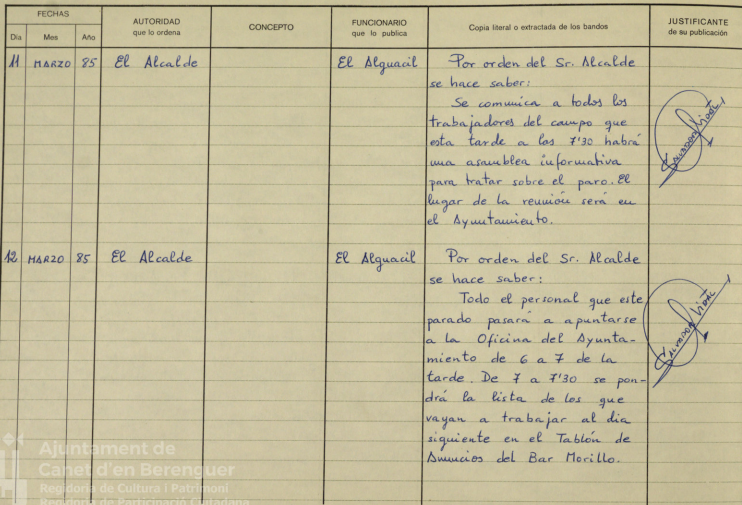 FECHAS
Día Mes Año
AUTORIDAD
que lo ordena
CONCEPTO
FUNCIONARIO
que lo publica
Copia literal o extractada de los bandos
JUSTIFICANTE
de su publicación
11 MARZO 85 El Alcalde El Alguacil Por orden del Sr. Alcalde
se hace saber:
Se comunica a todos los
trabajadores del campo que
esta tarde a las 7'30 habrá
una asamblea informativa
para tratar sobre el paro. El
lugar de la reunión será en
el Ayuntamiento.
SALVADOR VIDAL
12 MARZO 85 El Alcalde El Alguacil Por orden del Sr. Alcalde
se hace saber:
Todo el personal que este
parado pasará a apuntarse
a la Oficina del Ayunta-
miento de 6 a 7 de la
tarde. De 7 a 7'30 se pon-
drá la lista de los que
vayan a trabajar al dia
siguiente en el Tablón de
Anuncios del Bar Morillo.
SALVADOR VIDAL
Ajuntament de
Canet d'en Berenguer
Regidoria de Cultura i Patrimoni
Regidoria de Participació Ciutadana